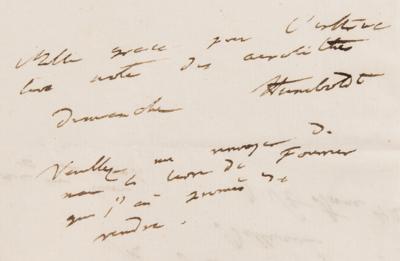 Mille grace pour l'
note des aerolithes
Dimanche Humboldt
Veuillez me renvoyer
le livre de Fourier
que j'ai promis de
rendre.